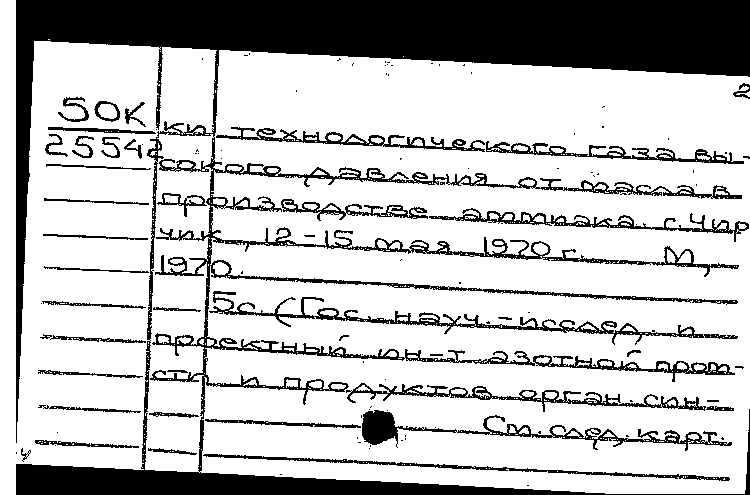 2
50К
25542
ки технологического газа вы-
сокого давления от масла в
производстве аммиака. г. Чир
чик, 12-15 мая 1970 г. М,
1970.
5с. (Гос. науч.-исслед. и
проектный ин-т азотной пром-
сти и продуктов орган. син-
См. след. карт.